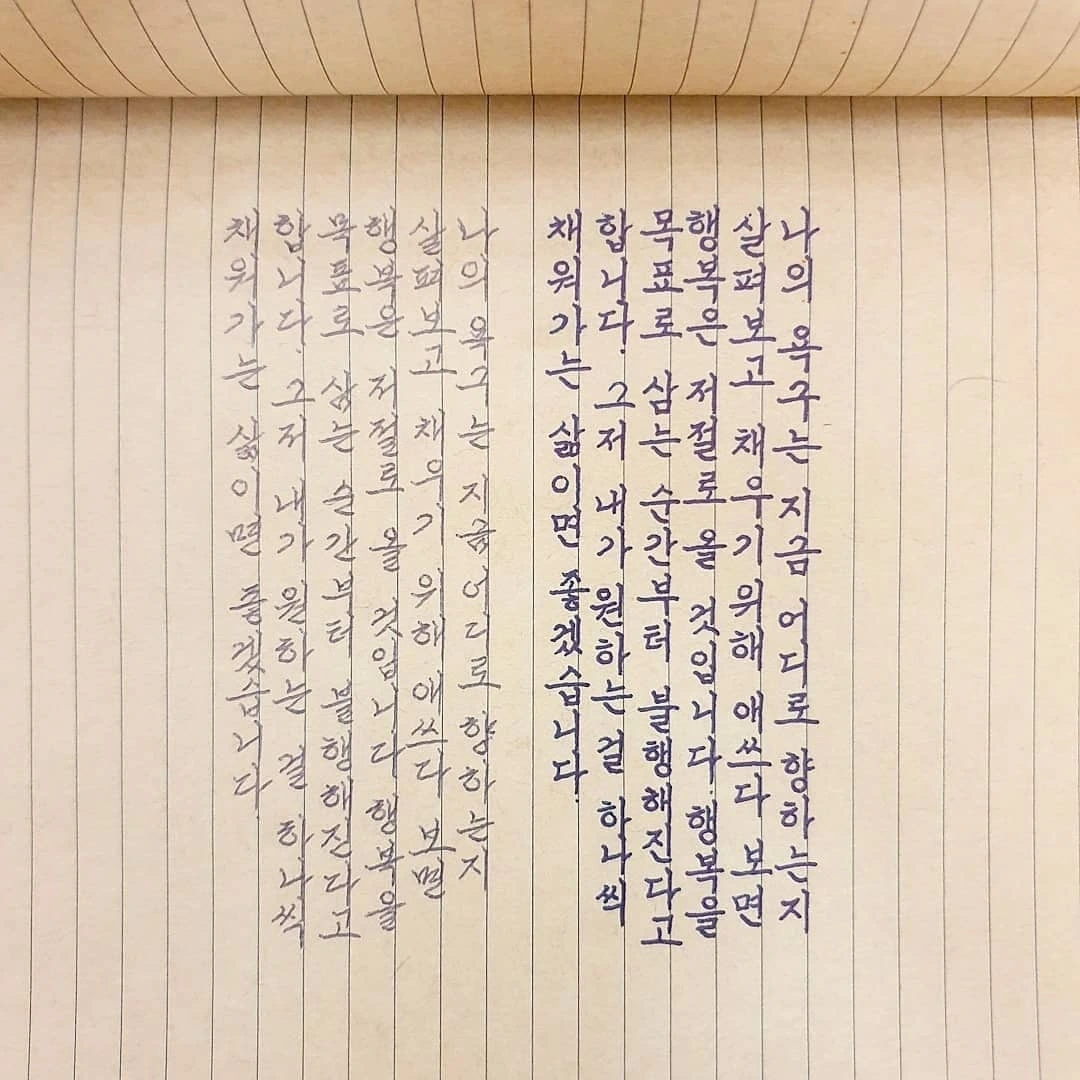 나의 욕구는 지금 어디로 향하는지
살펴보고 채우기 위해 애쓰다 보면
행복은 저절로 올 것입니다. 행복을
목표로 삼는 순간부터 불행해진다고
합니다. 그저 내가 원하는 걸 하나씩
채워가는 삶이면 좋겠습니다.
나의 욕구는 지금 어디로 향하는지
살펴보고 채우기 위해 애쓰다 보면
행복은 저절로 올 것입니다 행복을
목표로 삼는 순간부터 불행해진다고
합니다. 그저 내가 원하는 걸 하나씩
채워가는 삶이면 좋겠습니다.